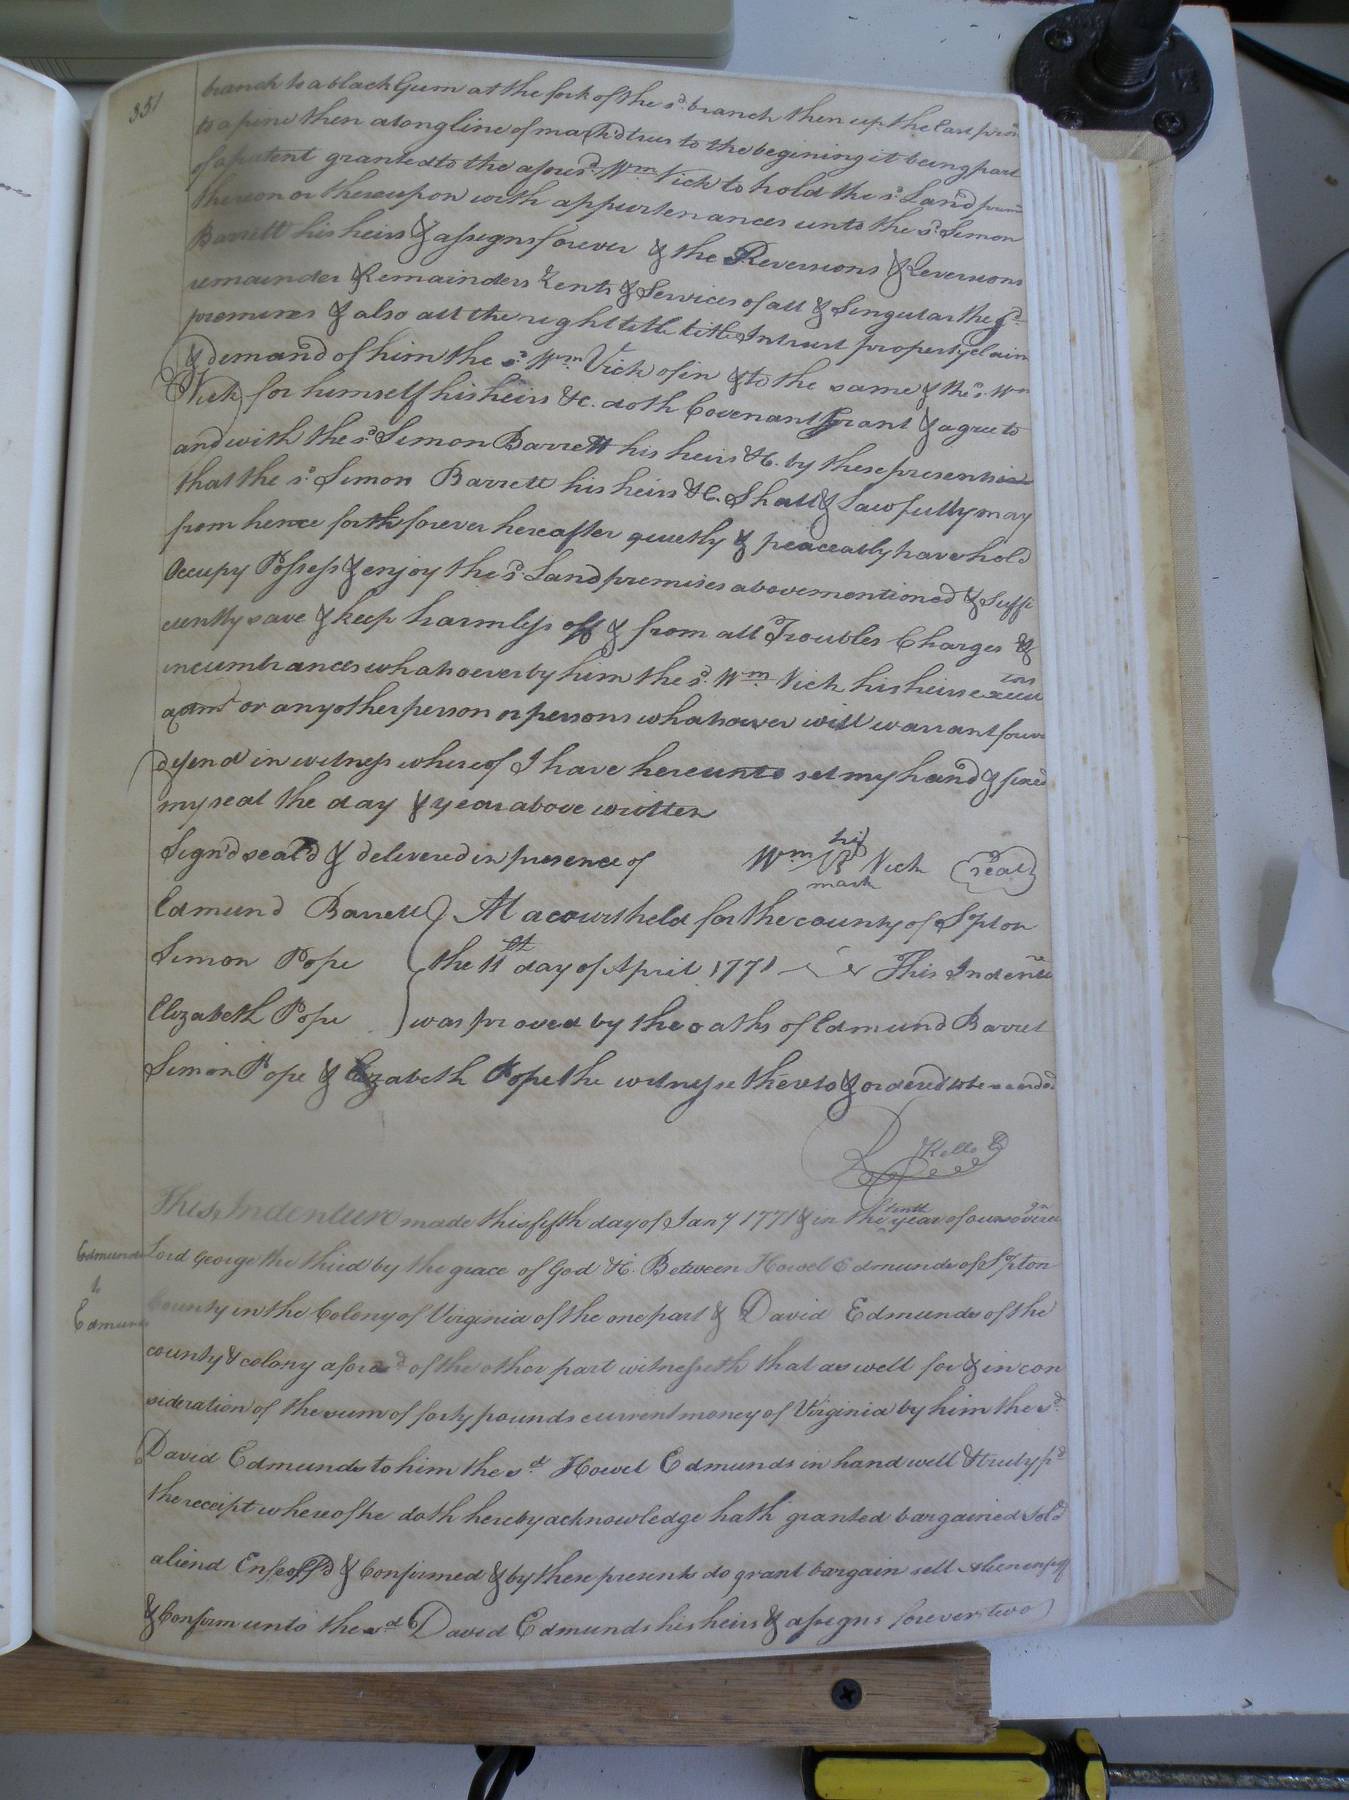 351
branch to a black Gum at the fork of the sd. branch then up the East prong
to a pine then along line of markd trees to the begining it being part
of a patent granted to the afores'd. Wm. Vick to hold the sd. Land
thereon or thereupon with appurtenances unto the sd. Simon
Barrett his heirs & assigns forever & the Reversions & Reversions
remainder & Remainders Rents & Services of all & Singular the sd.
premises & also all the right title title Intrust property claim
& demand of him the sd. Wm. Vick of in & to the same & the sd. Wm
Vick for himself his heirs &c. doth Covenant Grant & agree to
and with the sd. Simon Barrett his heirs &c. by these presents
that the sd. Simon Barrett his heirs &c. Shall & Lawfully may
from hence forth forever hereafter quietly & peaceably have hold
Occupy Possess & enjoy the sd. Land premises abovementioned & Suffi
ciently save & keep harmless off & from all Troubles Charges &
incumbrances whatsoever by him the sd. Wm. Vick his heirs execu
tors
admr or any other person or persons whatsoever will warrant forever
defend in witness whereof I have hereunto set my hand & fixed
my seal the day & year above written
Sign'd seal'd & delivered in presence of Wm his Vick seal
mark
Edmund Barrett At a court held for the county of Sthpton
Simon Pope the 11th day of April 1771 This Indenture
Elizabeth Pope was proved by the oaths of Edmund Barret
Simon Pope & Elizabeth Pope the witnesse thereto & ordered to be recorded
R Kello C
This Indenture made this fifth day of Jany 1771 & in the tenth year of our sovereign
Edmunds Lord George the third by the grace of God &c. Between Howel Edmunds of Sthpton
to County in the Colony of Virginia of the one part & David Edmunds of the
Edmunds
county & colony aforesd of the other part witnesseth that as well for & in con
sideration of the sum of forty pounds current money of Virginia by him the sd.
David Edmunds to him the sd. Howel Edmunds in hand well & truly pd
the receipt whereof he doth hereby acknowledge hath granted bargained sold
aliend Enfeoff'd & Confirmed & by these presents do grant bargain sell alien enfeoff
& Confirm unto the sd David Edmunds his heirs & assigns forever two